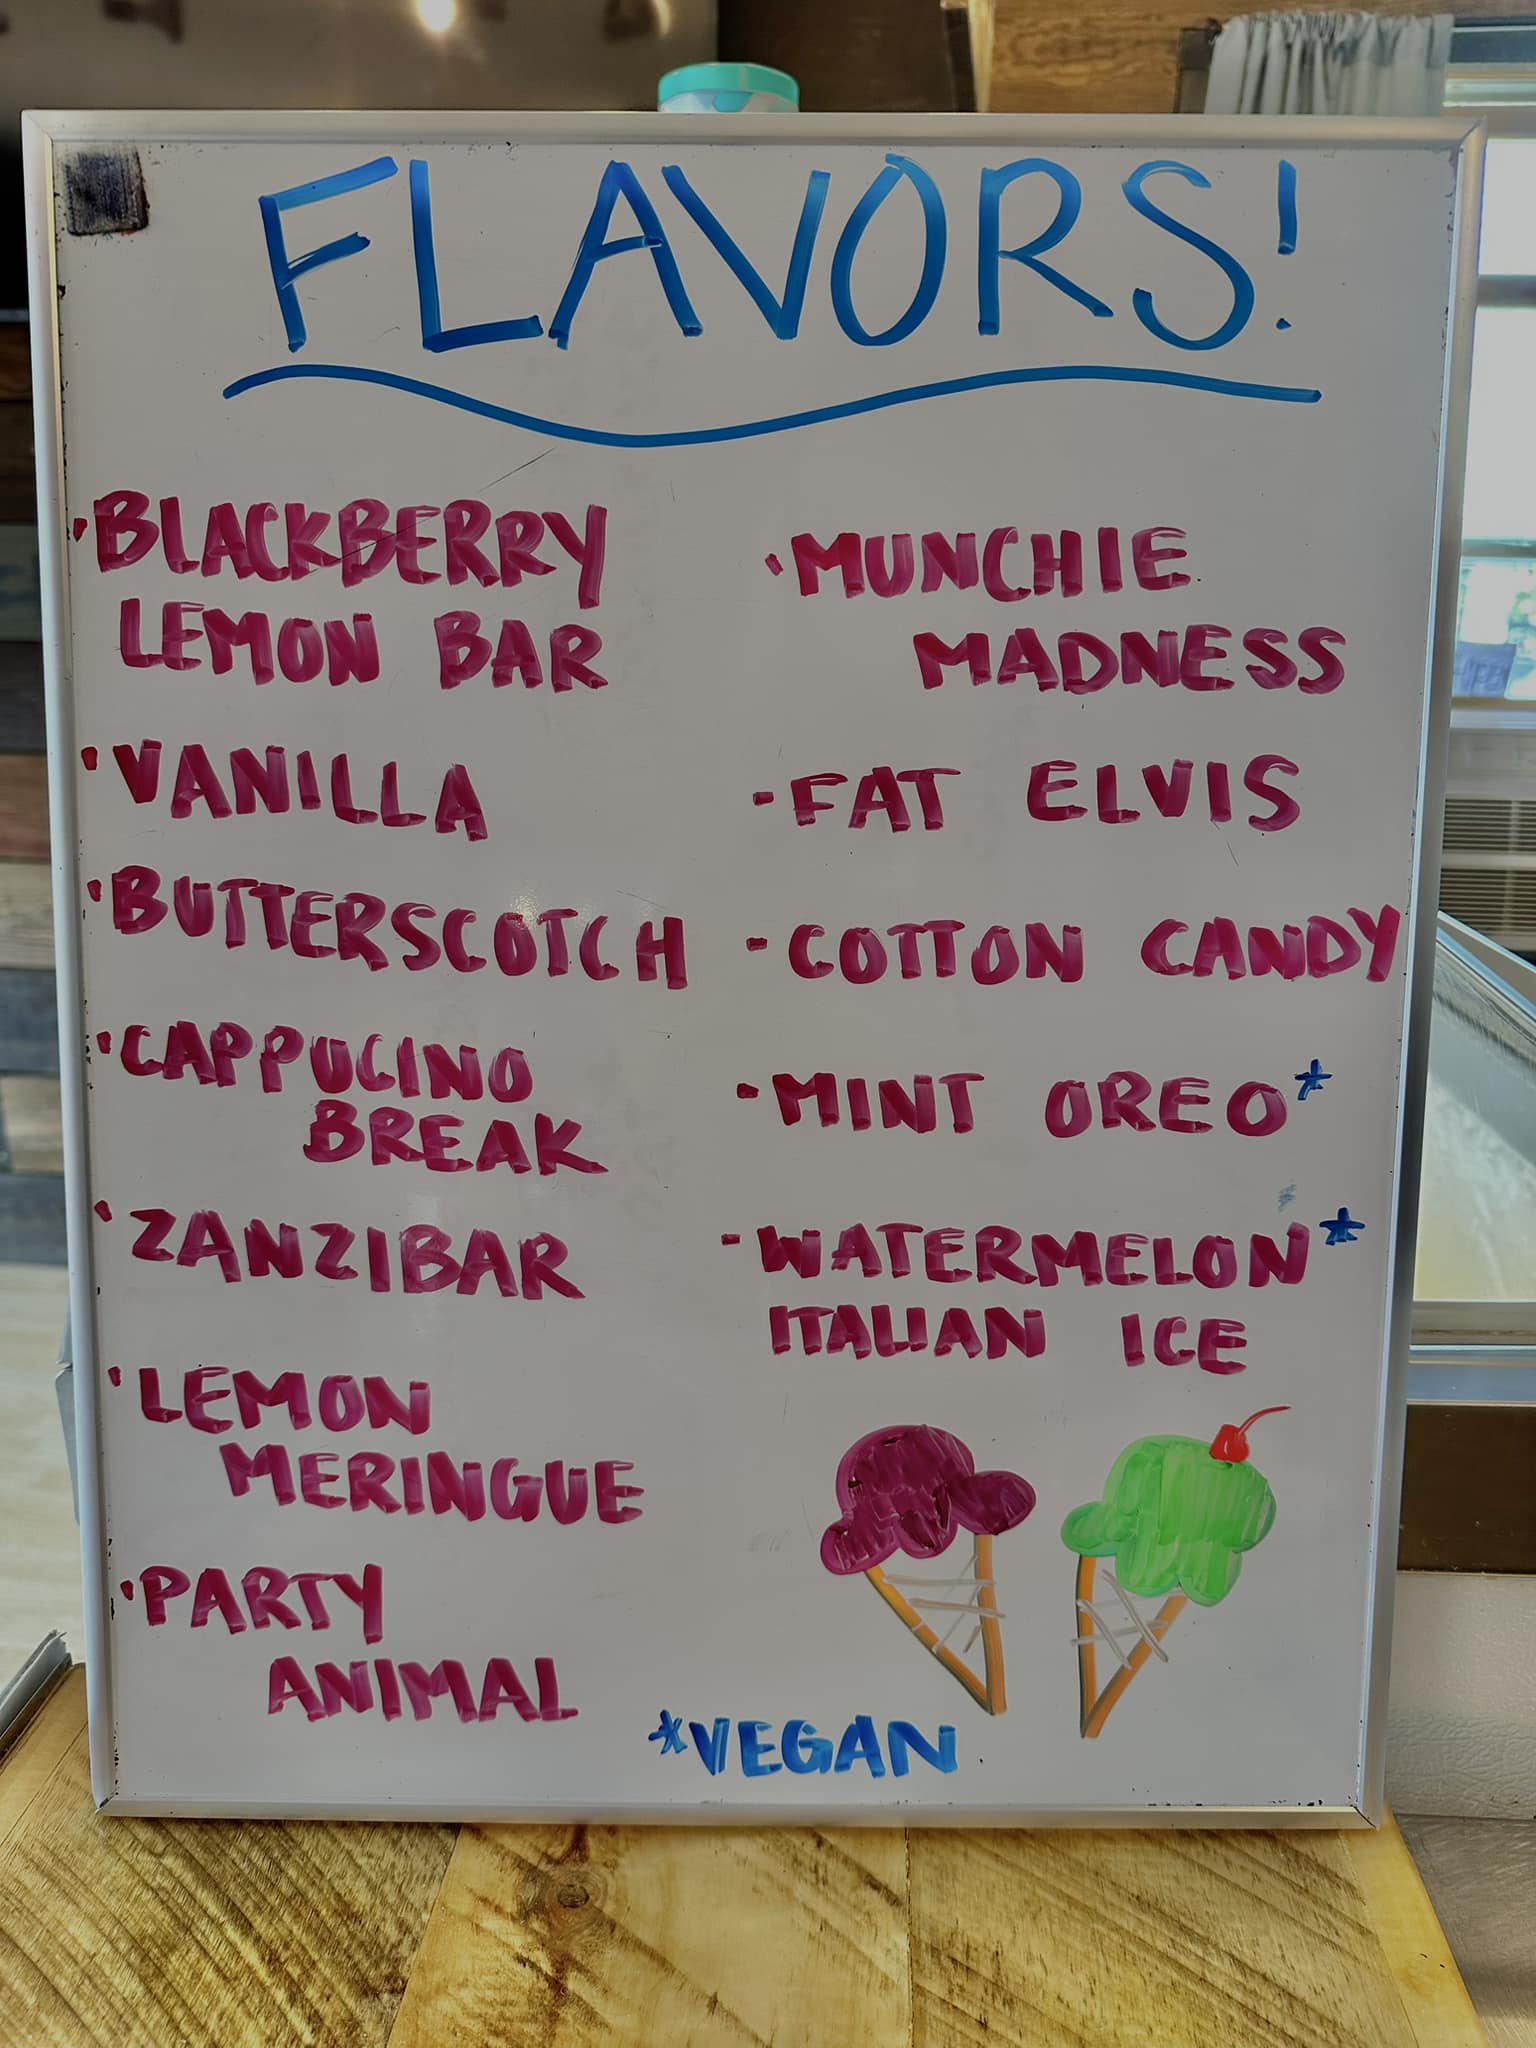 FLAVORS!
·BLACKBERRY
LEMON BAR
·VANILLA
·BUTTERSCOTCH
·CAPPUCINO
BREAK
·ZANZIBAR
·LEMON
MERINGUE
·PARTY
ANIMAL
·MUNCHIE
MADNESS
-FAT ELVIS
-COTTON CANDY
-MINT OREO*
-WATERMELON*
ITALIAN ICE
*VEGAN